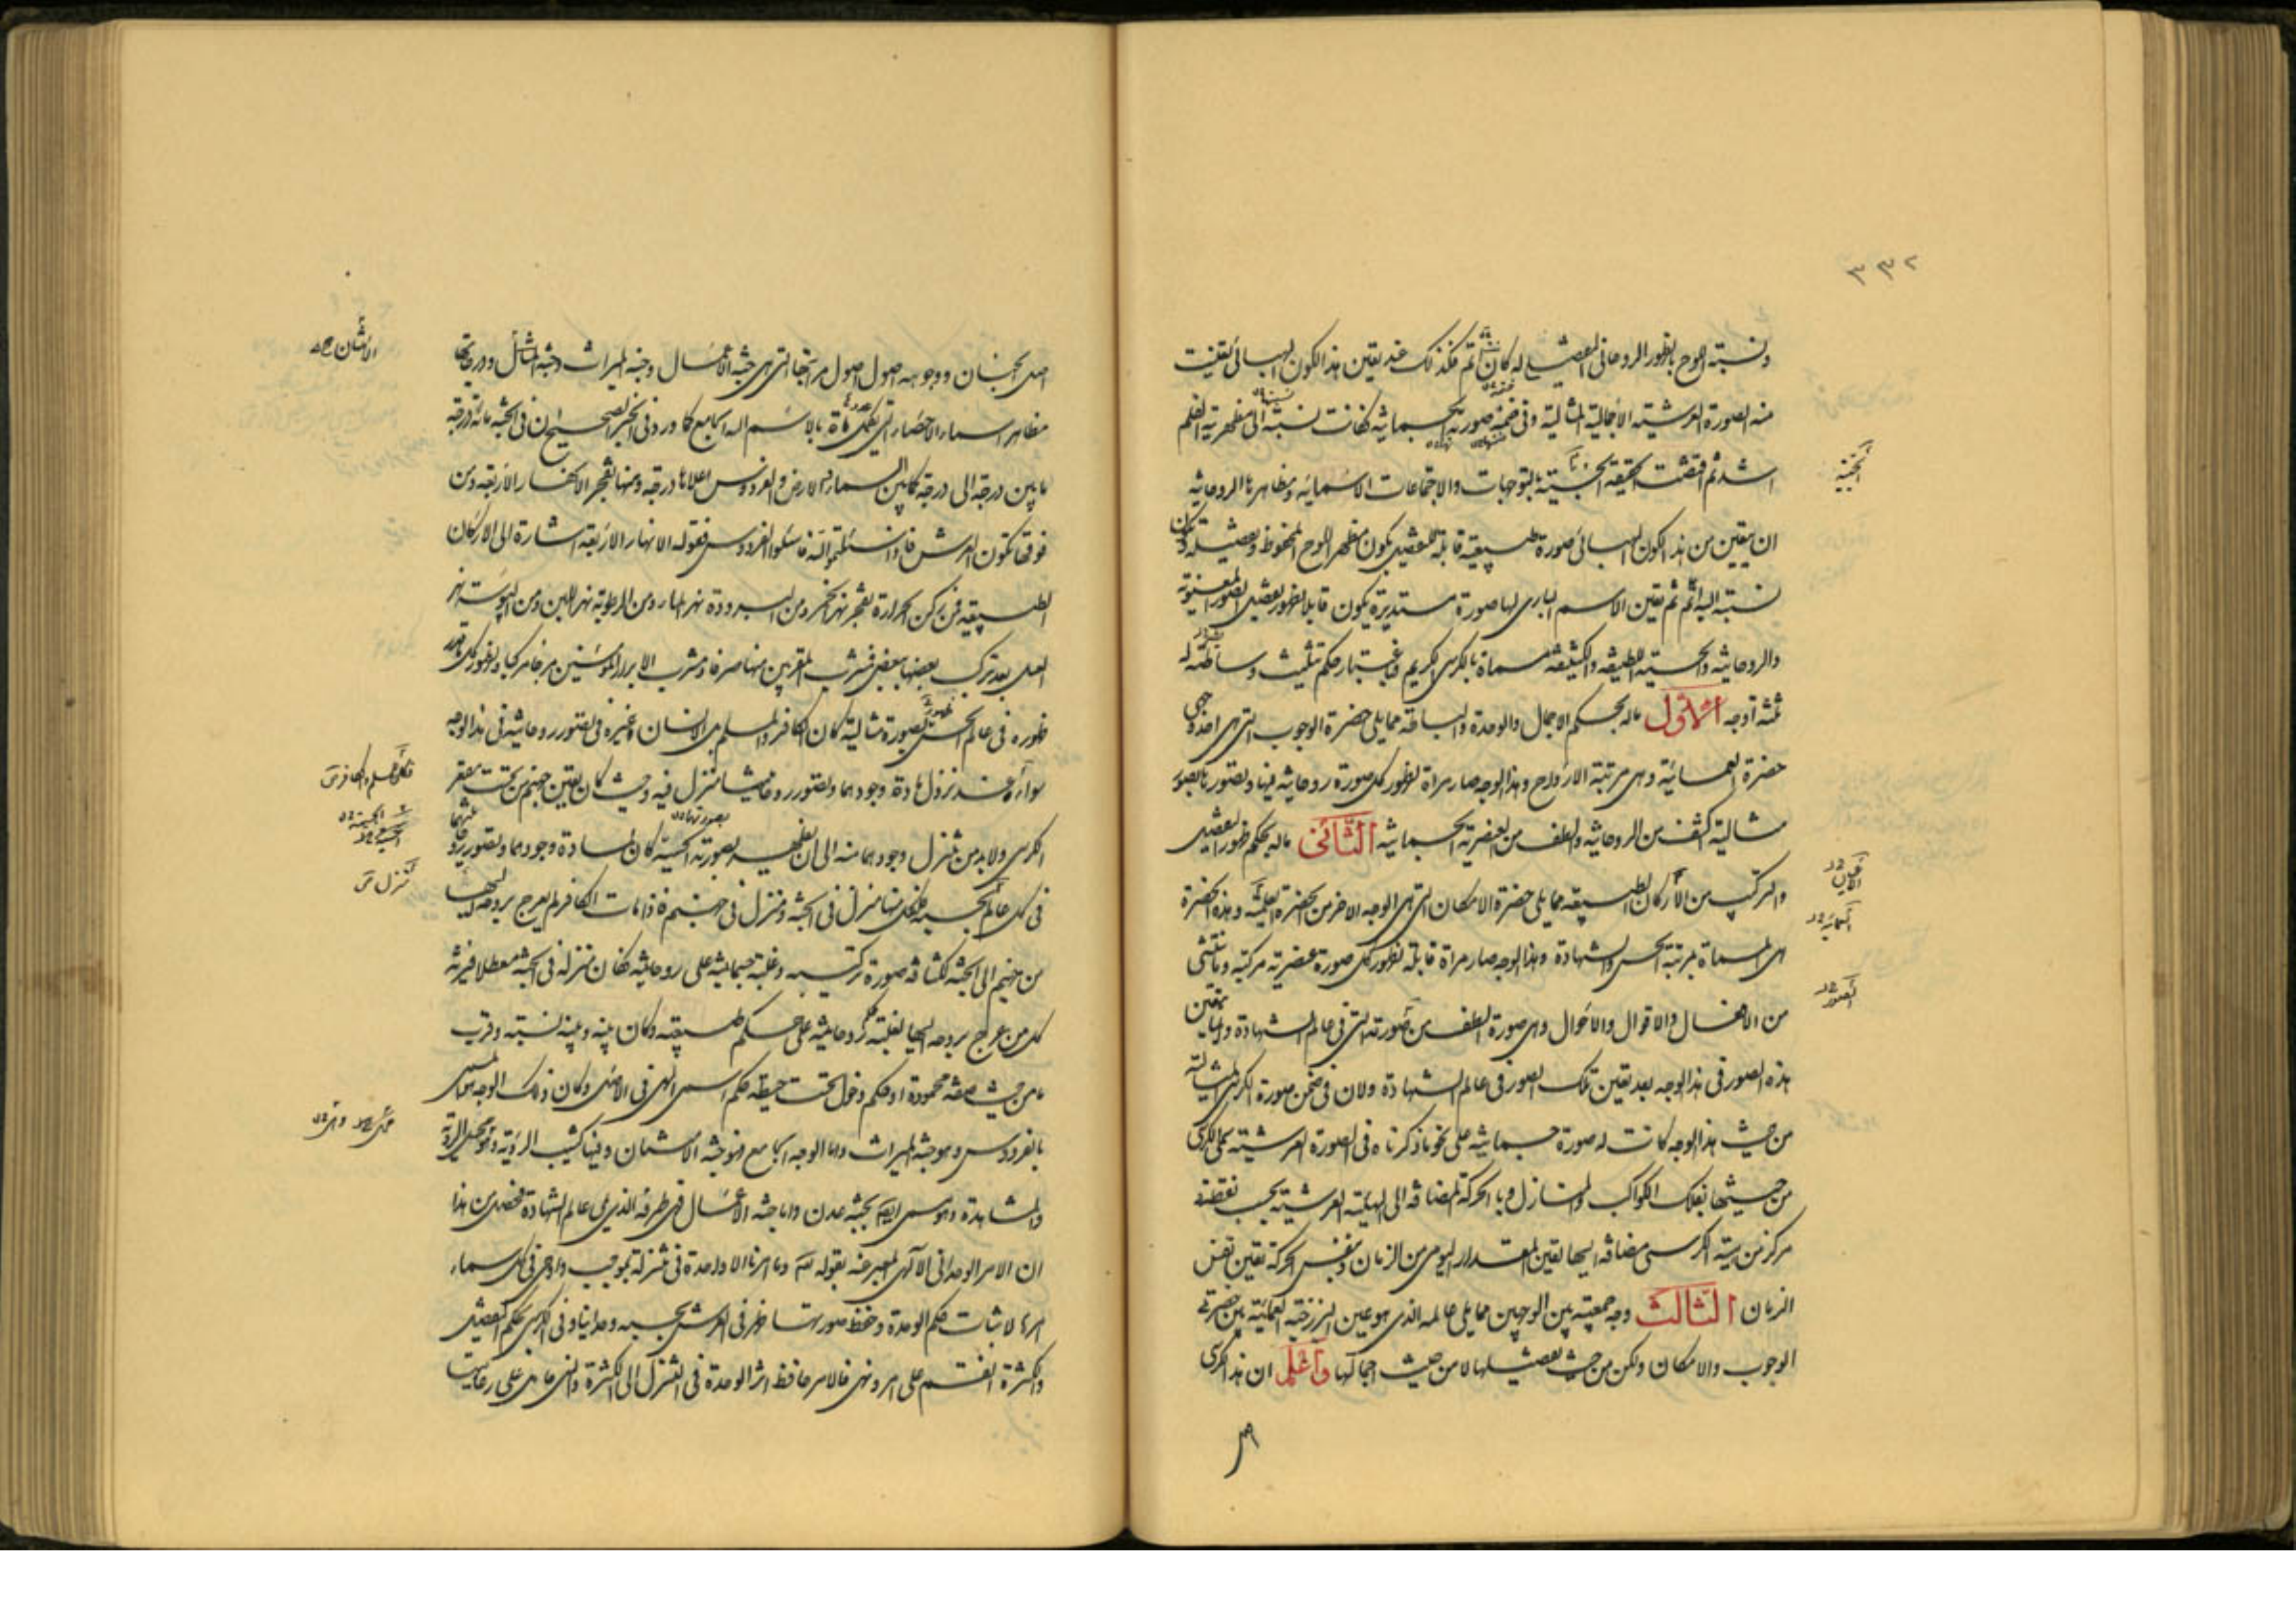 ٣٣٢
ونسبته اللوح بالظهور الروحانى التفصيلى له كان اتم فكذلك عند تعين هذا الكون الهبائى تعينت
منه الصورة العرشية الاجمالية المثالية وفى ضمنه صورته الجسمانية فكانت نسبته الى مظهرية القلم
اشد ثم اقتضت الحقيقة الحبية بالتوجهات والاجتماعات الاسمائية ومظاهرها الروحانية
ان يتعين من هذا الكون الهبائى صورة طبيعية قابلة للتفصيل يكون مظهر اللوح المحفوظ وتفصيله ويكون
نسبته اليه اتم ثم تعين الاسم البارى لها صورة مستديرة يكون قابلا لظهور تفصيل الصور المعنوية
والروحانية والحسية اللطيفة والكثيفة مسماة بالكرسى الكريم وباعتبار حكم تثليث وساطته له
ثلثة اوجه الاول ماله بحكم الاجمال والوحدة والبساطة مما يلى حضرة الوجوب التى هى احد وجهى
حضرة العمائية وهى مرتبة الارواح وهذا الوجه صار مرآة لظهور كل صورة روحانية فيها وتصورها بصورة
مثالية اكثف من الروحانية والطف من العنصرية الجسمانية الثانى ماله بحكم ظهور التفصيل
والتركيب من الاركان الطبيعية مما يلى حضرة الامكان التى هى الوجه الاخر من الحضرة العلمية وهذه الحضرة
هى المسماة بمرتبة الحس والشهادة وهذا الوجه صار مرآة قابلة لظهور كل صورة عنصرية مركبة وما ينتشى
من الافعال والاقوال والاحوال وهى صورة الطف من صورته التى فى عالم الشهادة وانما يتعين
هذه الصور فى هذا الوجه بعد تعين تلك الصور فى عالم الشهادة ولان فى ضمن صورة الكرسى المثالية
من حيث هذا الوجه كانت له صورة جسمانية على نحو ما ذكرناه فى الصورة العرشية سمى الكرسى
من حيثها بفلك الكواكب والمنازل وبالحركة المضافة الى الهيئة العرشية بحسب نقطة
مركزمن هيئة الكرسى مضافة اليها تعين المقدار اليومى من الزمان وبنفس الحركة تعين نفس
الزمان الثالث وجه جمعيته بين الوجهين مما يلى عالمه الذى هو عين البرزخية العمائية بين حضرتى
الوجوب والامكان ولكن من حيث تفصيلها لا من حيث اجمالها واعلم ان هذا الكرسى
اصل الجنان ووجوهه اصول اصول مراتبها التى هى جنة الاعمال وجنة الميراث وجنة الامتنان ودرجاتها
مظاهر اسماء الاحصاء التى يكمل عددها مائة بالاسم الله الجامع كما ورد فى الخبر الصحيح ان فى الجنة مائة درجة
ما بين درجة الى درجة كما بين السماء والارض والفردوس اعلاها درجة ومنها تفجر الانهار الاربعة ومن
فوقها تكون العرش فاذا سئلتم الله فاسئلوا الفردوس فقوله الانهار الاربعة اشارة الى الاركان
الطبيعية فمن ركن الحرارة تفجر نهر الخمر ومن البرودة نهر الماء ومن الرطوبة نهر اللبن ومن اليبوسة نهر
العسل بعد تركب بعضها ببعض فشرب المقربين منها صرفا ومشرب الابرار المؤمنين مزجا مركبا ولظهور كل ما قدر
ظهوره فى عالم الحس ظهر بصورة مثالية كان الكافر والمسلم من الانسان وغيره فى تصور روحانيته فى هذا الوجه
سواء وعند نزول مادة وجودهما وتصور روحانيتهما منزل فيه وحيث كان تعين جهنم من تحت مقعر
الكرسى ولا بد من تنزل وجودهما منه الى ان يظهر بصورته الحسية كان لمادة وجودهما وتصور روحانيتهما
فى كل عالم بحسبه فلكل منهما منزل فى الجنة ومنزل فى جهنم فاذا مات الكافر لم يعرج بروحه اليها
من جهنم الى الجنة لكثافة صورة تركيبه وغلبة جسمانيته على روحانيته فكان منزله فى الجنة معطلا فيرثه
كل من عرج بروحه اليها لغلبة حكم روحانيته على حكم طبيعته وكان بينه وبينه نسبة وقرب
ما من حيث صفة محمودة او حكم دخول تحت حيطة حكم اسمى الهى فى الاصل وكان ذلك الوجه المسمى
بالفردوس وهو جنة الميراث واما الوجه الجامع فهو جنة الامتنان وفيها كثيب الرؤية وهو محل الرؤية
والمشاهدة وهو سمى ايضا بجنة عدن واما جنة الاعمال فهى طرفه الذى يلى عالم الشهادة فحصل من هذا
ان الامر الوحدانى الالهى المعبر عنه بقوله تعالى وما امرنا الا واحدة فى تنزله بموجب واوحى فى كل سماء
امرها لاثبات حكم الوحدة وحفظ صورتها ظهر فى العرش بحسبه وحدانيا وفى الكرسى بحكم التفصيل
والكثرة انقسم على امر ونهى فالامر حافظ اثر الوحدة فى التنزل الى الكثرة والنهى حامل على رعايتها